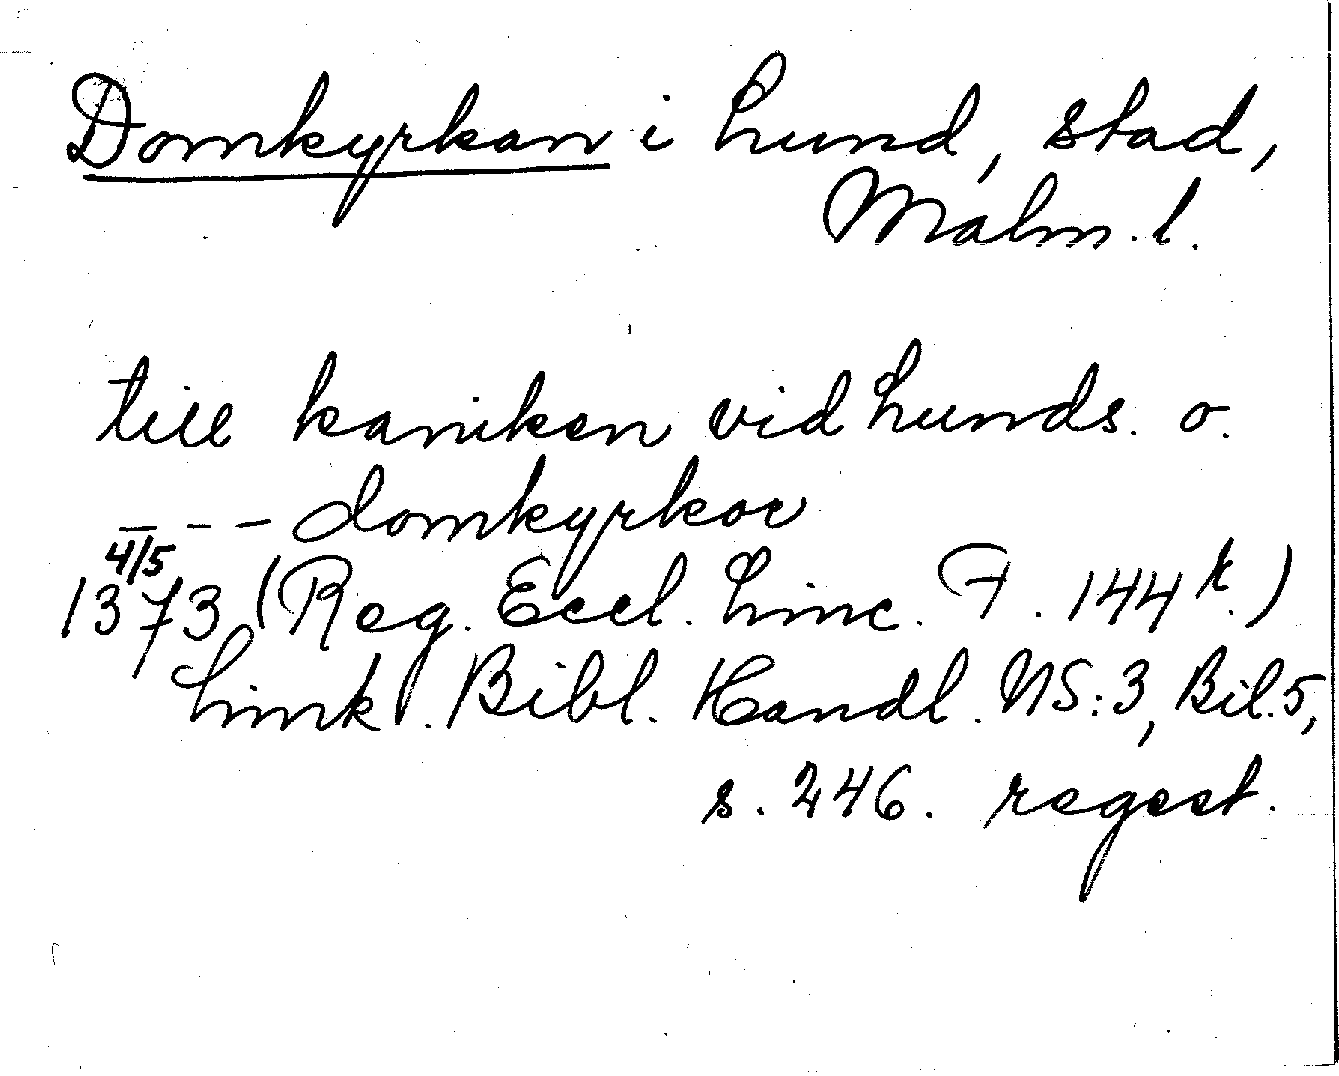 Domkyrkan i Lund, stad,
Malm. l.
till kaniken vid Lunds. o.
- - - domkyrkor
4/5
1373 (Reg. Eccl. Linc. F. 144 r.)
Link. Bibl. Handl. NS:3, Bil.5,
s. 246. regest.